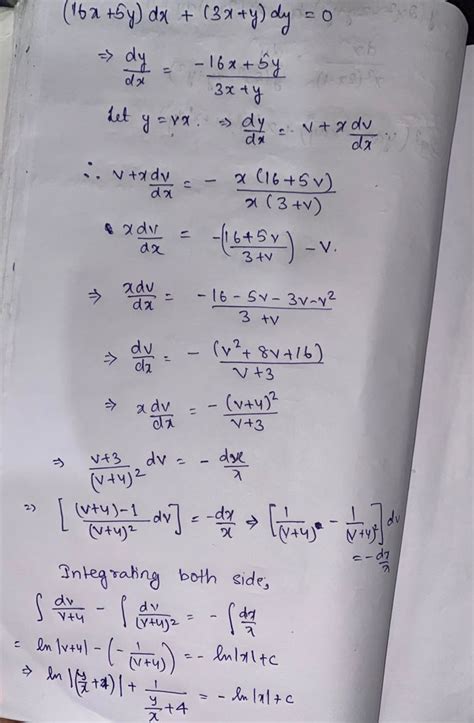 (16x + 5y) dx + (3x+y) dy = 0
⇒ dy/dx = -16x + 5y / 3x + y
Let y = vx. ⇒ dy/dx = v + x dv/dx.
∴ v + x dv/dx = - x(16 + 5v) / x(3 + v)
x dv/dx = -(16 + 5v / 3 + v) - v.
⇒ x dv/dx = -16 - 5v - 3v - v² / 3 + v
⇒ dv/dx = - (v² + 8v + 16) / v + 3
⇒ x dv/dx = - (v+4)² / v + 3
⇒ v+3 / (v+4)² dv = - dx/x
⇒ [ (v+4) - 1 / (v+4)² dv ] = -dx/x ⇒ [ 1/(v+4) - 1/(v+4)² ] dv
= -dx/x
Integrating both side,
∫ dv/v+4 - ∫ dv/(v+4)² = - ∫ dx/x
= ln|v+4| - (- 1/(v+4)) = - ln|x| + c
⇒ ln|(y/x + 4)| + 1 / y/x + 4 = - ln|x| + c